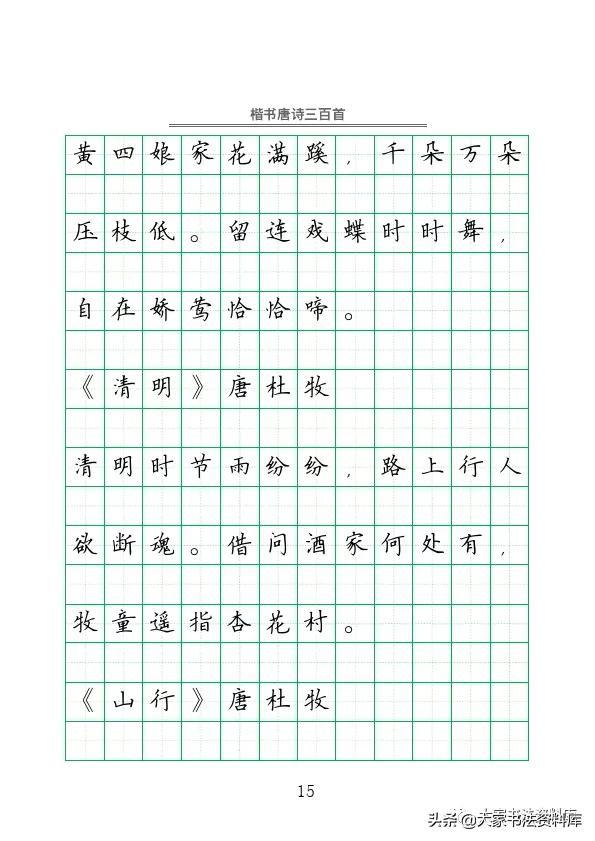 楷书唐诗三百首
黄四娘家花满蹊，千朵万朵
压枝低。留连戏蝶时时舞，
自在娇莺恰恰啼。
《清明》唐杜牧
清明时节雨纷纷，路上行人
欲断魂。借问酒家何处有，
牧童遥指杏花村。
《山行》唐杜牧
15
大家书法资料库
头条@大家书法资料库